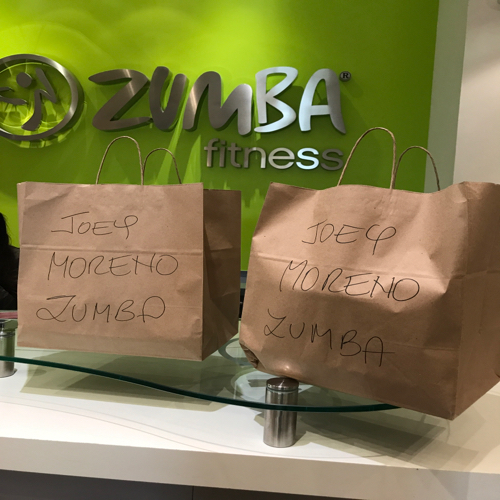 ZUMBA®
fitness
JOEY
MORENO
ZUMBA
JOEY
MORENO
ZUMBA